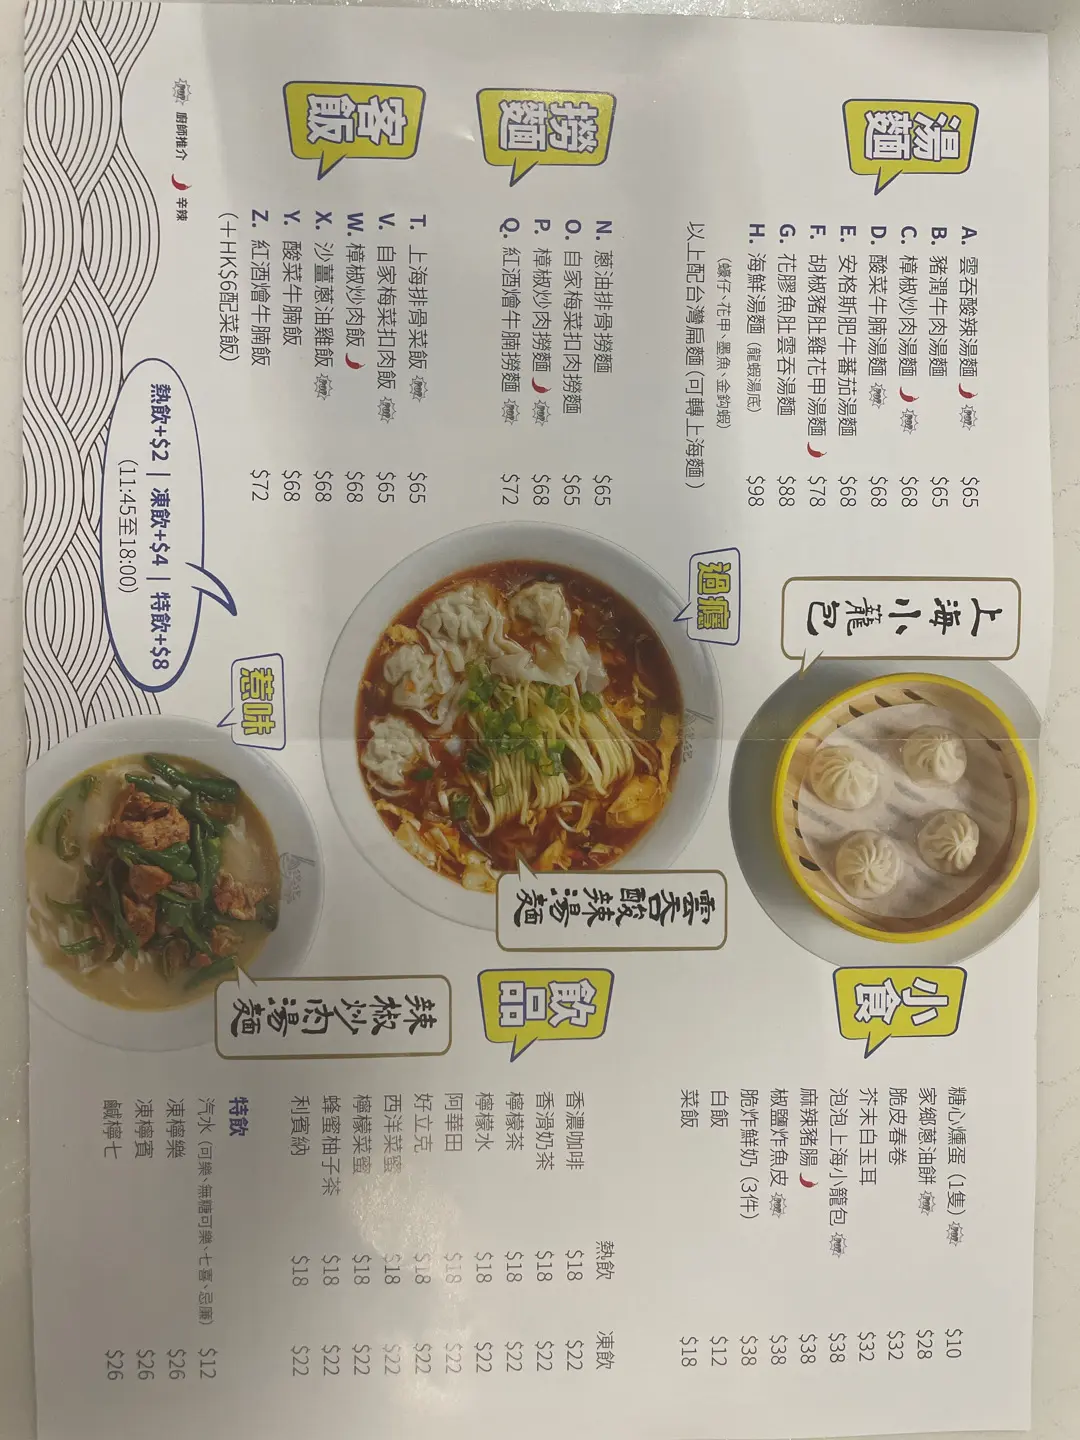 湯麵
A. 雲吞酸辣湯麵 $65
B. 豬潤牛肉湯麵 $65
C. 樟椒炒肉湯麵 $68
D. 酸菜牛腩湯麵 $68
E. 安格斯肥牛蕃茄湯麵 $68
F. 胡椒豬肚雞花甲湯麵 $78
G. 花膠魚肚雲吞湯麵 $88
H. 海鮮湯麵 (龍蝦湯底) $98
(蠔仔、花甲、墨魚、金鈎蝦)
以上配台灣扁麵 (可轉上海麵)
撈麵
N. 蔥油排骨撈麵 $65
O. 自家梅菜扣肉撈麵 $65
P. 樟椒炒肉撈麵 $68
Q. 紅酒燴牛腩撈麵 $72
客飯
T. 上海排骨菜飯 $65
V. 自家梅菜扣肉飯 $65
W. 樟椒炒肉飯 $68
X. 沙薑蔥油雞飯 $68
Y. 酸菜牛腩飯 $68
Z. 紅酒燴牛腩飯 $72
(+HK$6配菜飯)
廚師推介 辛辣
熱飲+$2 | 凍飲+$4 | 特飲+$8
(11:45至18:00)
上海小籠包
過癮
雲吞酸辣湯麵
惹味
辣椒炒肉湯麵
小食
糖心燻蛋 (1隻) $10
家鄉蔥油餅 $28
脆皮春卷 $32
芥末白玉耳 $32
泡泡上海小籠包 $38
麻辣豬腸 $38
椒鹽炸魚皮 $38
脆炸鮮奶 (3件) $38
白飯 $12
菜飯 $18
飲品
熱飲 凍飲
香濃咖啡 $18 $22
香滑奶茶 $18 $22
檸檬茶 $18 $22
檸檬水 $18 $22
阿華田 $18 $22
好立克 $18 $22
西洋菜蜜 $18 $22
檸檬菜蜜 $18 $22
蜂蜜柚子茶 $18 $22
利賓納 $18 $22
特飲
汽水 (可樂、無糖可樂、七喜、忌廉) $12
凍檸樂 $26
凍檸賓 $26
鹹檸七 $26